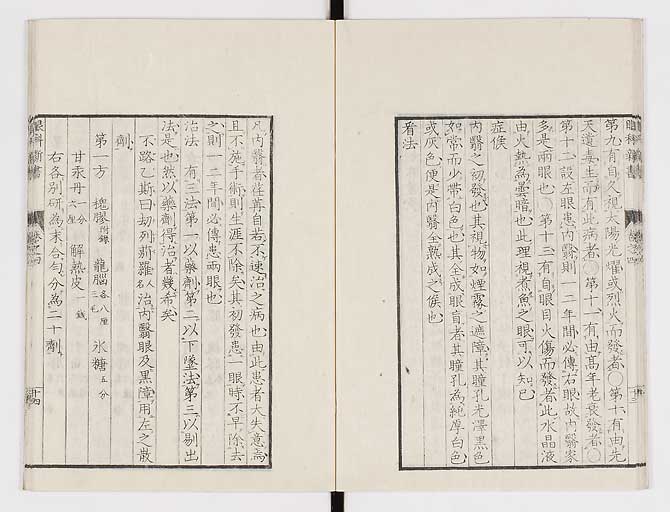 第九有自久視太陽光曜或烈火而發者○第十有由先
天遺毒生而有此病者○第十一有由高年老衰發者○
第十二設左眼患內翳則一二年間必傳右眼故內翳家
多是兩眼也○第十三有自眼目火傷而發者此水晶液
由火熱為雲暗也此理視煮魚之眼可以知已
症候
內翳之初發也其視物如煙霧之遮障其瞳孔光澤黑色
如常而少帶白色也其全成眼盲者其瞳孔為純厚白色
或灰色便是內翳全熟成之候也
看法
凡內翳者荏苒自若不速治之病也由此患者大失意焉
且不施手術則生涯不除矣其初發患一眼時不早除去
之則一二年間必傳患兩眼也
治法 有三法第一以藥劑第二以下墜法第三以剔出
法是也然以藥劑得治者幾希矣
不路乙斯曰刧列新羅人名治內翳眼及黑障用左之散
劑
第一方 槐膠附錄 龍腦各八厘三毛 氷糖五分
甘汞丹一分六厘 解熱皮一錢
右各別研為末合勻分為二十劑
眼科新書 卷之四 十三
眼科新書 卷之四 十四